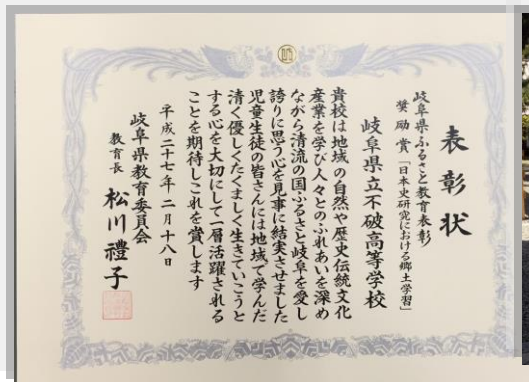 表彰状
岐阜県ふるさと教育表彰
奨励賞「日本史研究における郷土学習」
岐阜県立不破高等学校
貴校は地域の自然や歴史伝統文化
産業を学び人々とのふれあいを深め
ながら清流の国ふるさと岐阜を愛し
誇りに思う心を見事に結実させました
児童生徒の皆さんには地域で学んだ
清く優しくたくましく生きていこうと
する心を大切にして一層活躍される
ことを期待しこれを賞します
平成二十七年二月十八日
岐阜県教育委員会
教育長 松川禮子